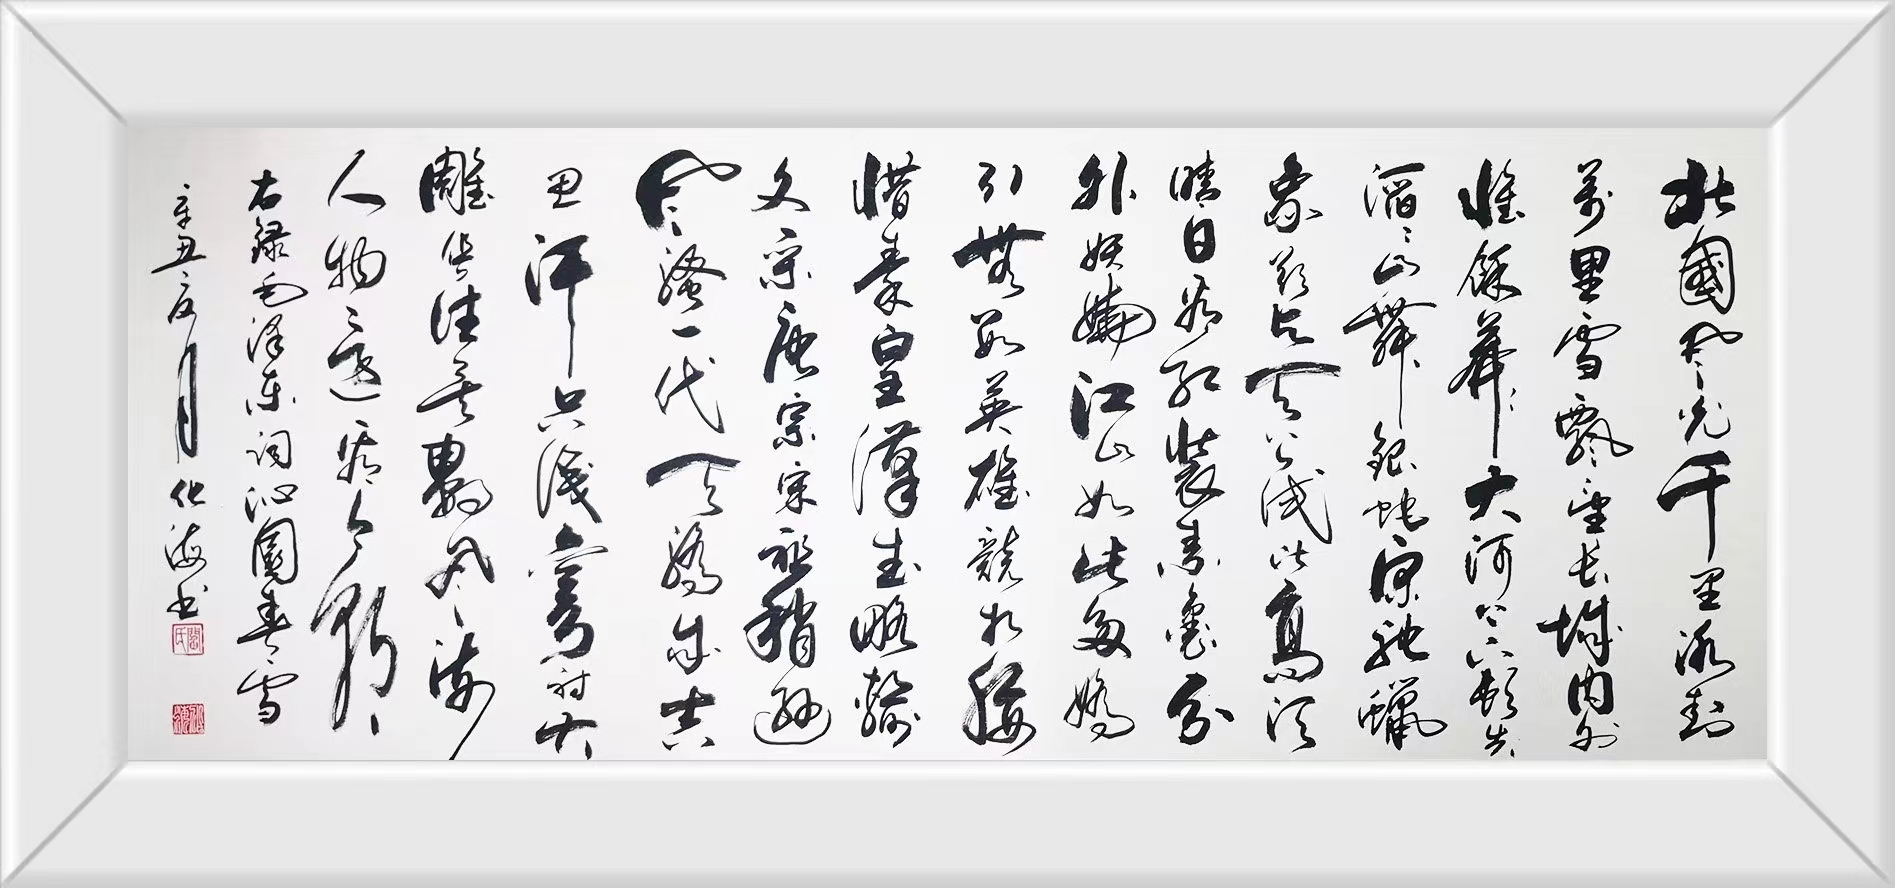 北國風光千里冰封
萬里雪飄望长城内外
惟餘莽莽大河上下頓失
滔滔山舞銀蛇原馳蠟
象欲与天公試比高須
晴日看紅裝素裹分
外妖嬈江山如此多嬌
引無數英雄競折腰
惜秦皇漢武略輸
文采唐宗宋祖稍遜
風騷一代天驕成吉
思汗只識彎弓射大
雕俱往矣數風流
人物還看今朝
右録毛澤東詞沁園春雪
辛丑夏月化海书